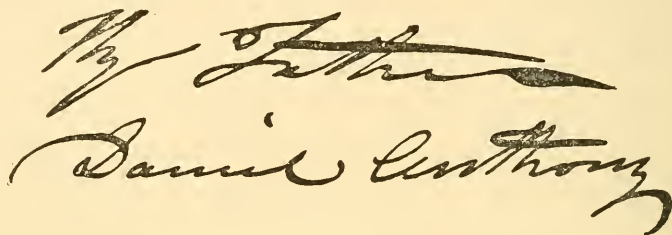 My Father
Daniel Anthony